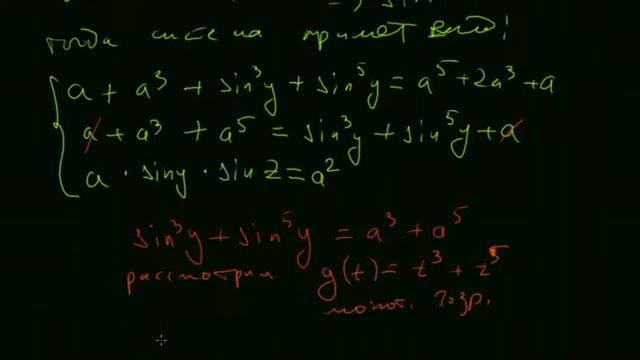 ⇒ sin
тогда система примет вид!
a + a³ + sin³y + sin⁵y = a⁵ + 2a³ + a
a + a³ + a⁵ = sin³y + sin⁵y + a
a · siny · sin z = a²
sin³y + sin⁵y = a³ + a⁵
рассмотрим g(t) = t³ + t⁵
монот. возр.